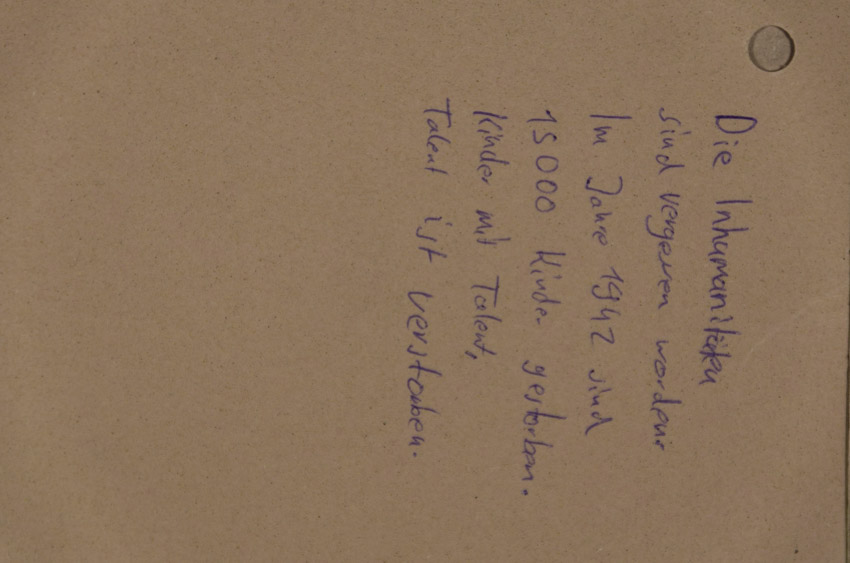 Die Inhumanitäten
sind vergessen worden.
Im Jahre 1942 sind
15000 Kinder gestorben.
Kinder mit Talent,
Talent ist verstorben.